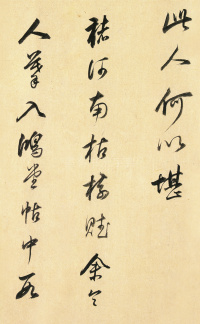 此人何以堪
褚河南枯樹賦余令
人摹入鴻堂帖中